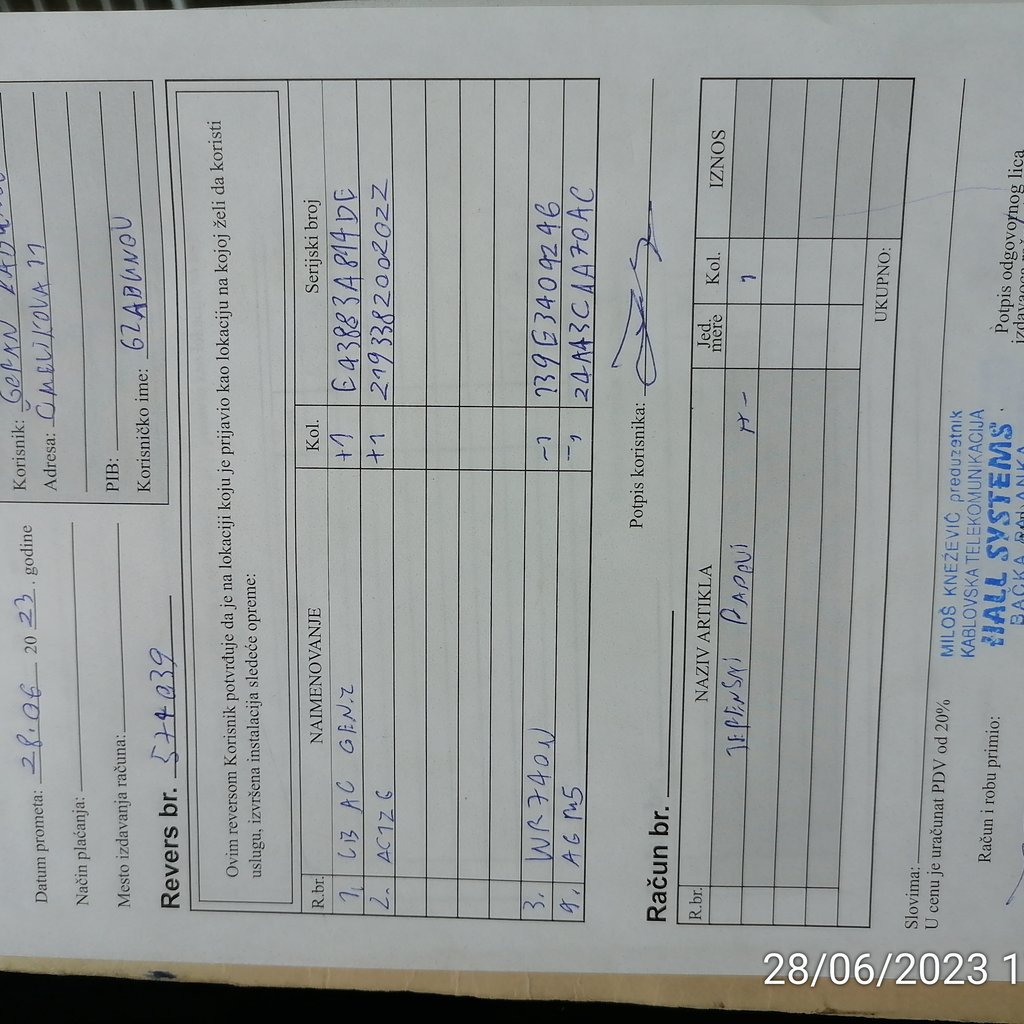 Datum prometa: 28.06 20 23 . godine
Način plaćanja:
Mesto izdavanja računa:
Korisnik:
Adresa:
PIB:
Korisničko ime:
Revers br. 574939
Ovim reversom Korisnik potvrđuje da je na lokaciji koju je prijavio kao lokaciju na kojoj želi da koristi
uslugu, izvršena instalacija sledeće opreme:
R.br. NAIMENOVANJE Kol. Serijski broj
1. LB AC GEN2 +1
2. AC12 G +1 2193382002022
3. WR740N -1
AG M5 -1 24A43CAA70AC
Potpis korisnika:
Račun br.
R.br. NAZIV ARTIKLA Jed. mere Kol. IZNOS
1
UKUPNO:
Slovima:
U cenu je uračunat PDV od 20%
MILOŠ KNEŽEVIĆ preduzetnik
KABLOVSKA TELEKOMUNIKACIJA
HALL SYSTEMS
BAČKA PALANKA
Račun i robu primio:
Potpis odgovornog lica
28/06/2023 1